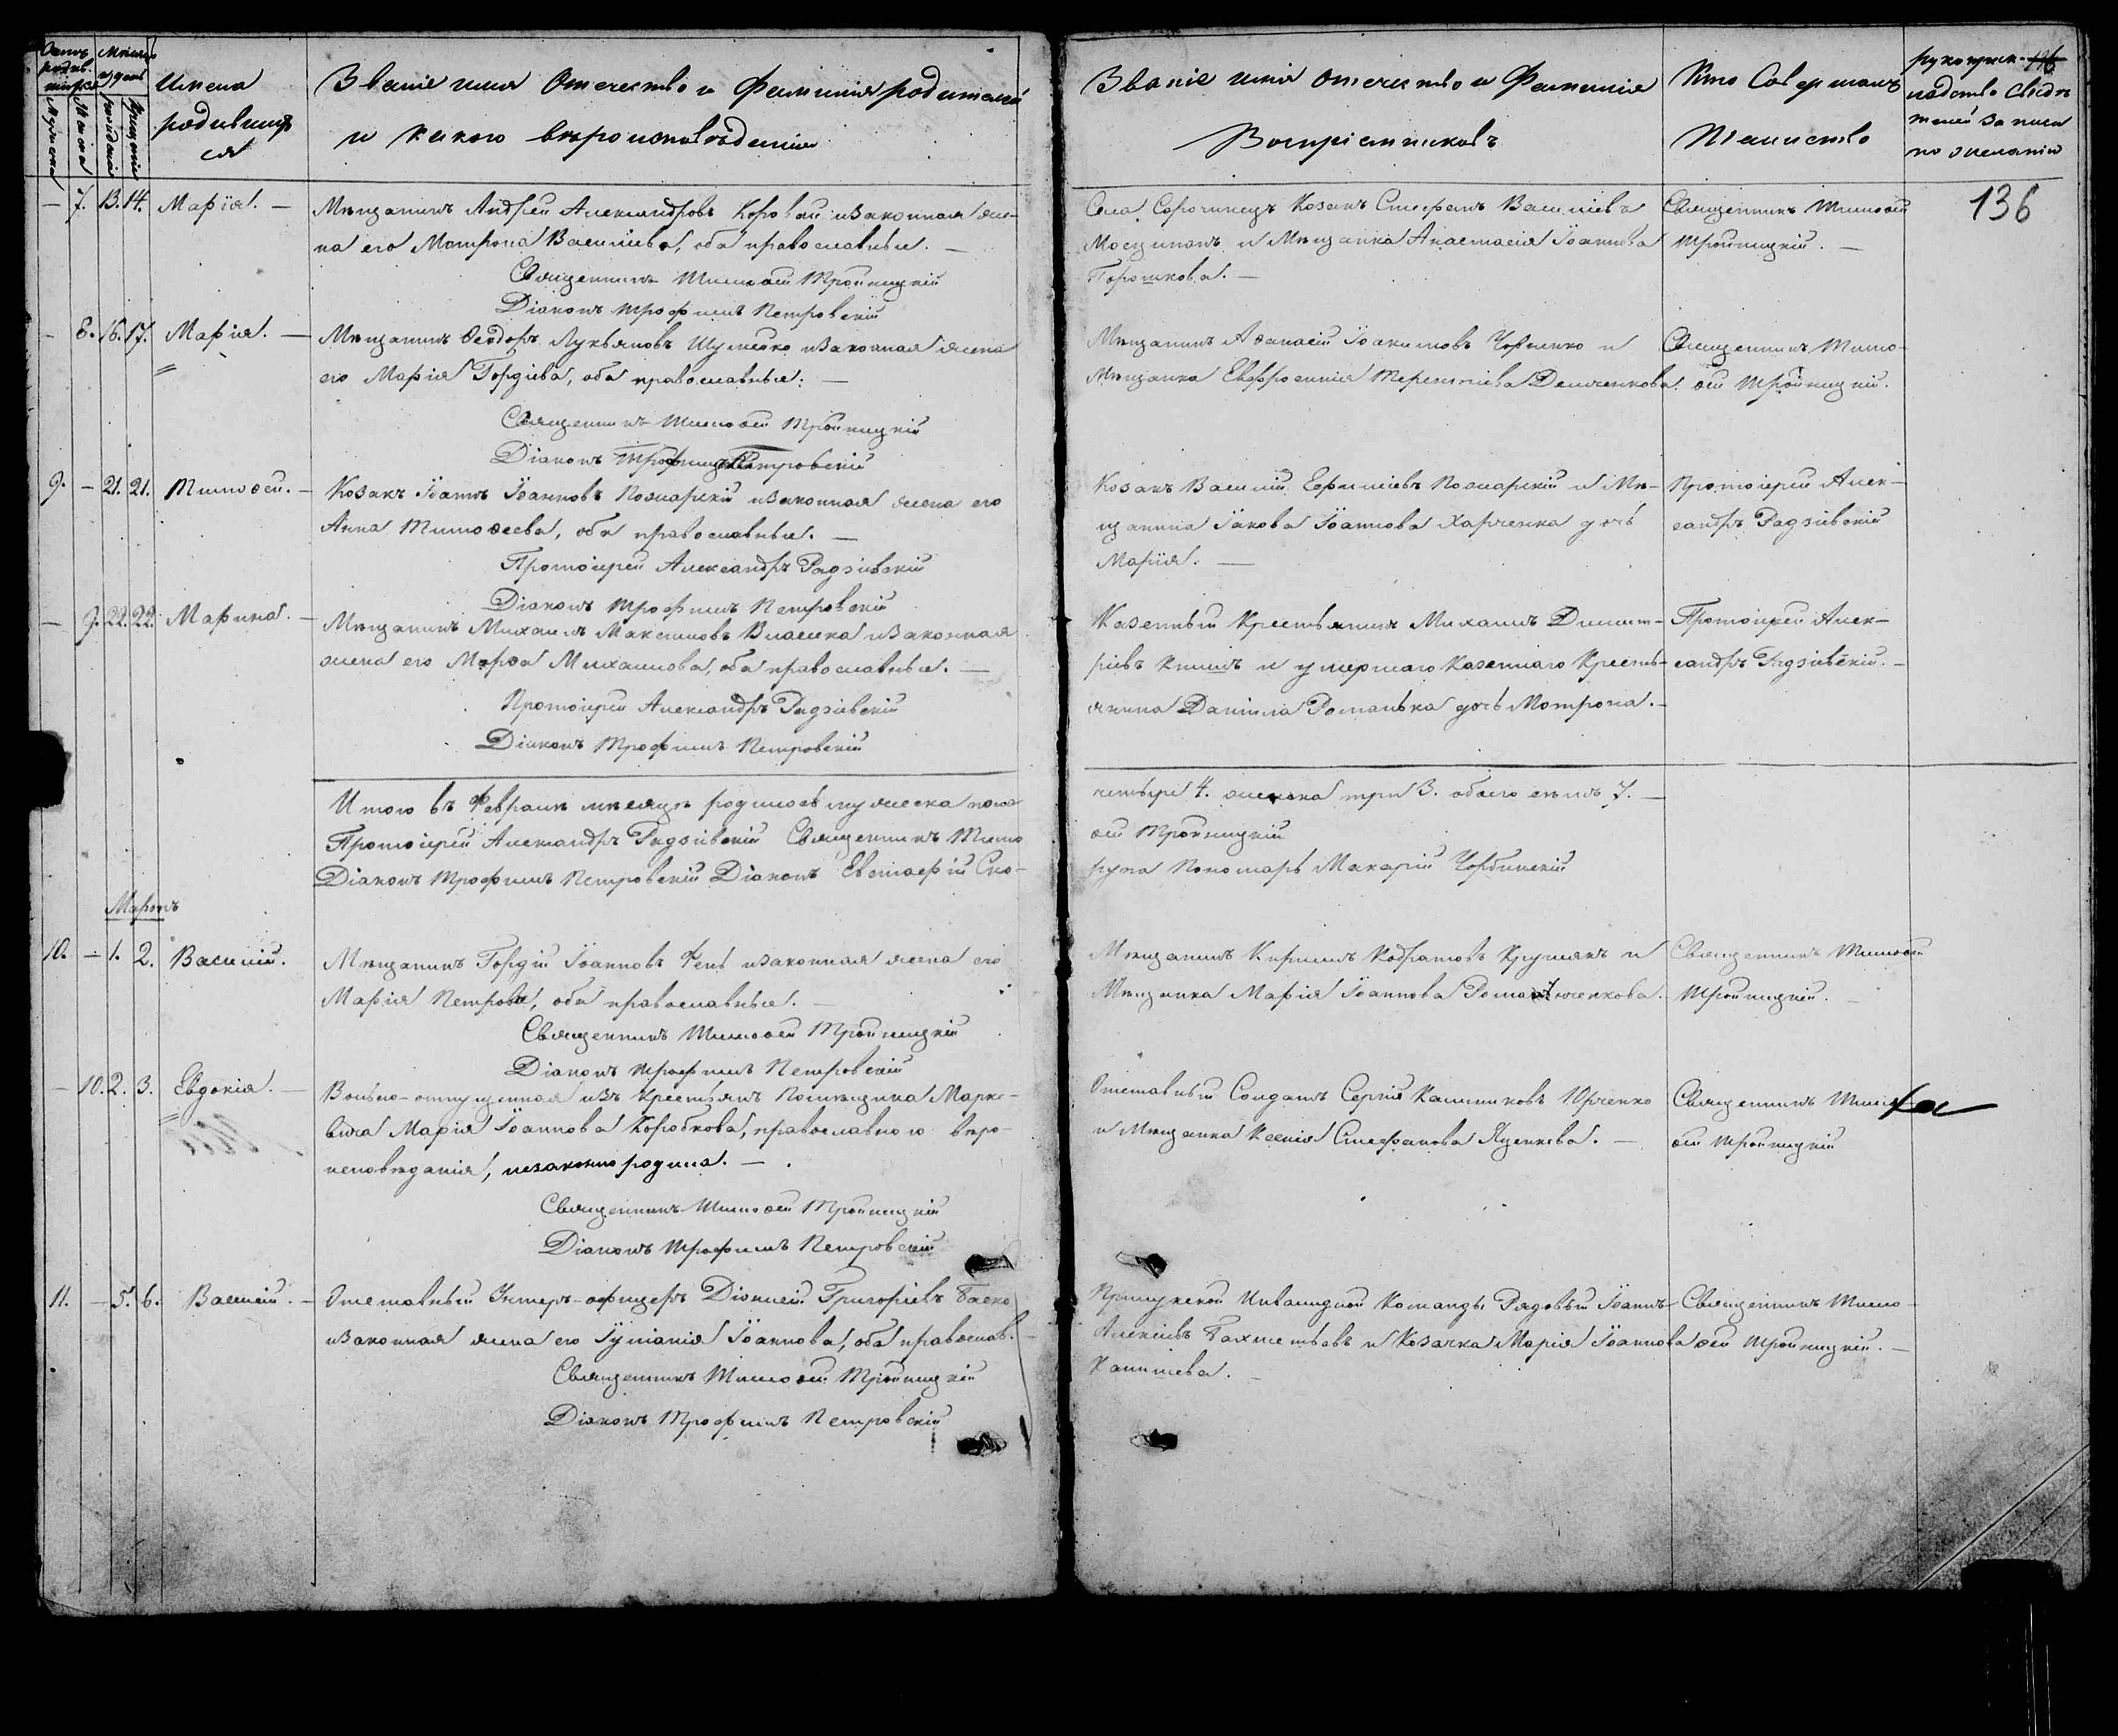 Счетъ родив- шихся
Мѣсяцъ и день
Мужеска
Женска
рожденія
крещенія
Имена родившихся
Званіе имя Отечество и Фамилія родителей
и какого вѣроисповѣданія
Званіе имя отечество и Фамилія
Воспріемниковъ
Кто Совершалъ
Таинство
рукоприк-
ладство свидѣ-
телей записи
по желанію
136
— 7. 13. 14. Марія. —
Мѣщанинъ Андрей Александровъ Коровай и законная же-
на его Матрона Васильева, оба православные. —
Священникъ Тимоѳей Тройницкій
Діаконъ Трофимъ Петровскій
Села Сорочинецъ Козакъ Стефанъ Васильевъ
и Мѣщанка Анастасія Іоаннова
Горошкова. —
Священникъ Тимоѳей
Тройницкій. —
— 8. 16. 17. Марія. —
Мѣщанинъ Ѳеодоръ Лукьяновъ Шулейко и законная жена
его Марія Гордіева, оба православные. —
Священникъ Тимоѳей Тройницкій
Діаконъ Трофимъ Петровскій
Мѣщанинъ Аѳанасій Іоакимовъ Чорненко и
Мѣщанка Евфросинія Терентіева Демченкова.
Священникъ Тимо-
ѳей Тройницкій.
9. — 21. 21. Тимоѳей. —
Козакъ Іоаннъ Іоанновъ Пожарскій и законная жена его
Анна Тимоѳеева, оба православные. —
Протоіерей Александръ Радзіевскій
Діаконъ Трофимъ Петровскій
Козакъ Василій Ефиміевъ Пожарскій и Мѣ-
щанина Іакова Іоаннова Харченка дочь
Марія. —
Протоіерей Алек-
сандръ Радзіевскій
— 9. 22. 22. Марина. —
Мѣщанинъ Михаилъ Максимовъ Власенка и законная
жена его Марѳа Михайлова, оба православные. —
Протоіерей Александръ Радзіевскій
Діаконъ Трофимъ Петровскій
Казенный Крестьянинъ Михаилъ Димит-
ріевъ и умершаго Казеннаго Кресть-
янина Даніила Романька дочь Матрона. —
Протоіерей Алек-
сандръ Радзіевскій. —
Итого въ Февралѣ мѣсяцѣ родилось мужеска пола
четыре 4. женска три 3. обоего седмь 7. —
Протоіерей Александръ Радзіевскій Священникъ Тимо
ѳей Тройницкій
Діаконъ Трофимъ Петровскій Діаконъ Евстафій Ско-
руна Пономарь Макарій Чорбинскій
Мартъ
10. — 1. 2. Василій.
Мѣщанинъ Гордій Іоанновъ Фень и законная жена его
Марія Петрова, оба православные. —
Священникъ Тимоѳей Тройницкій
Діаконъ Трофимъ Петровскій
Мѣщанинъ Кирилъ Кодратовъ Крутякъ и
Мѣщанка Марія Іоаннова
Священникъ Тимоѳей
Тройницкій. —
— 10. 2. 3. Евдокія. —
Вольно-отпущенная изъ крестьянъ Помѣщика Марке-
вича Марія Іоаннова Коробкова, православного вѣро-
исповѣданія, незаконно родила. —
Священникъ Тимоѳей Тройницкій
Діаконъ Трофимъ Петровскій
Отставный Солдатъ Сергій Калиниковъ Юрченко
и Мѣщанка Ксенія Стефанова Яценкова. —
Священникъ Тимо-
ѳей Тройницкій
11. — 5. 6. Василій. —
Отставный Унтеръ-офицеръ Діонисій Григоріевъ Баско
и законная жена его Іуліанія Іоаннова, оба православ.
Священникъ Тимоѳей Тройницкій
Діаконъ Трофимъ Петровскій
Прилукской Инвалидной Команды Рядовый Іоаннъ
Алексіевъ Бахметьевъ и Козачка Марія Іоаннова
Священникъ Тимо-
ѳей Тройницкій. —